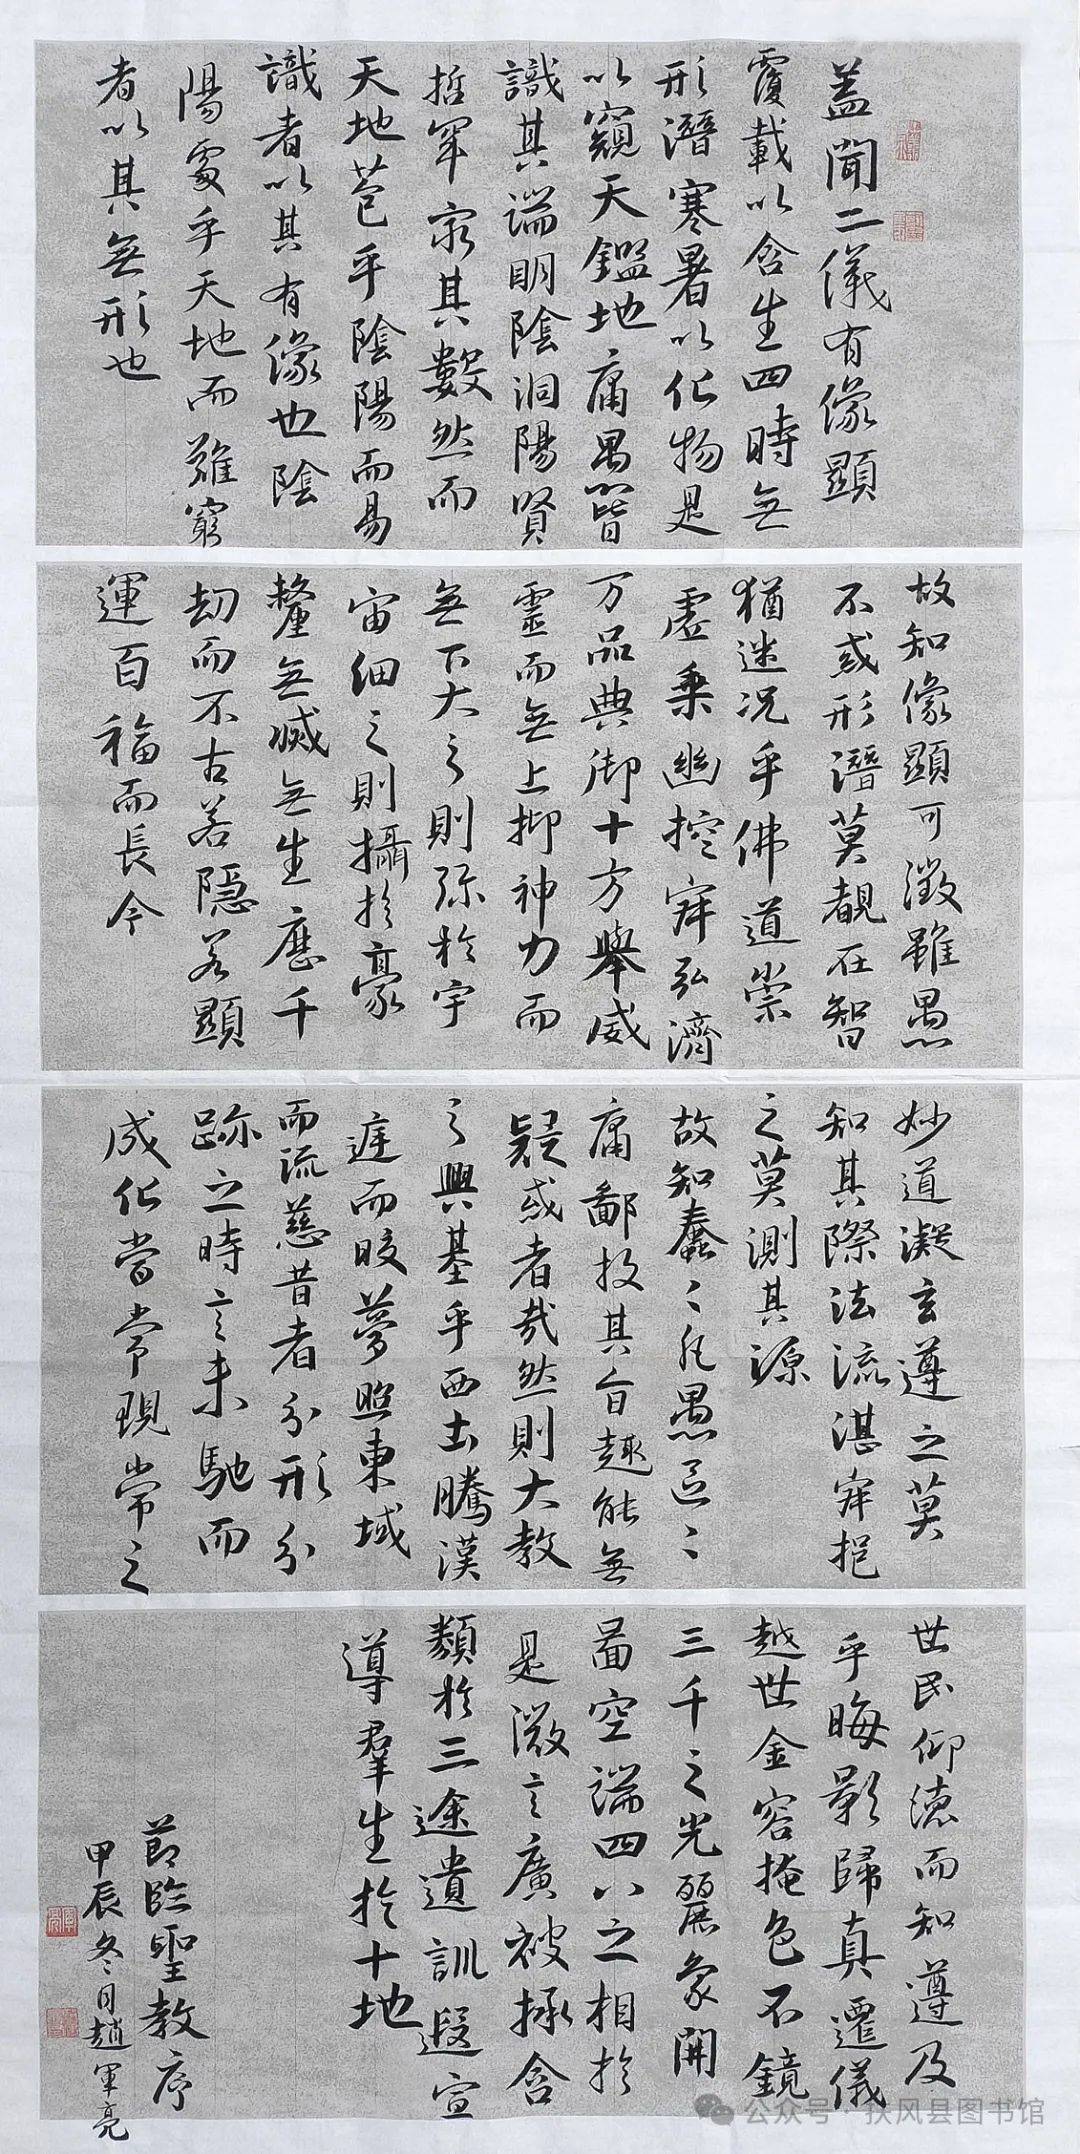 蓋聞二儀有像顯
覆載以含生四時無
形潛寒暑以化物是
以窺天鑑地庸愚皆
識其端明陰洞陽賢
哲罕窮其數然而
天地苞乎陰陽而易
識者以其有像也陰
陽處乎天地而難窮
者以其無形也
故知像顯可徵雖愚
不惑形潛莫覩在智
猶迷況乎佛道崇
虛乗幽控寂弘濟
万品典御十方舉威
靈而無上抑神力而
無下大之則弥於宇
宙細之則攝於豪
釐無滅無生歷千
劫而不古若隱若顯
運百福而長今
妙道凝玄遵之莫
知其際法流湛寂挹
之莫測其源
故知蠢〻凡愚區〻
庸鄙投其旨趣能無
疑惑者哉然則大教
之興基乎西土騰漢
庭而皎夢照東域
而流慈昔者分形分
跡之時言未馳而
成化當常現常之
世民仰德而知遵及
乎晦影歸真遷儀
越世金容掩色不鏡
三千之光麗象開
圖空端四八之相於
是微言廣被拯含
類於三途遺訓遐宣
導羣生於十地
節臨聖教序
甲辰冬月趙軍亮
公众号·扶风县图书馆